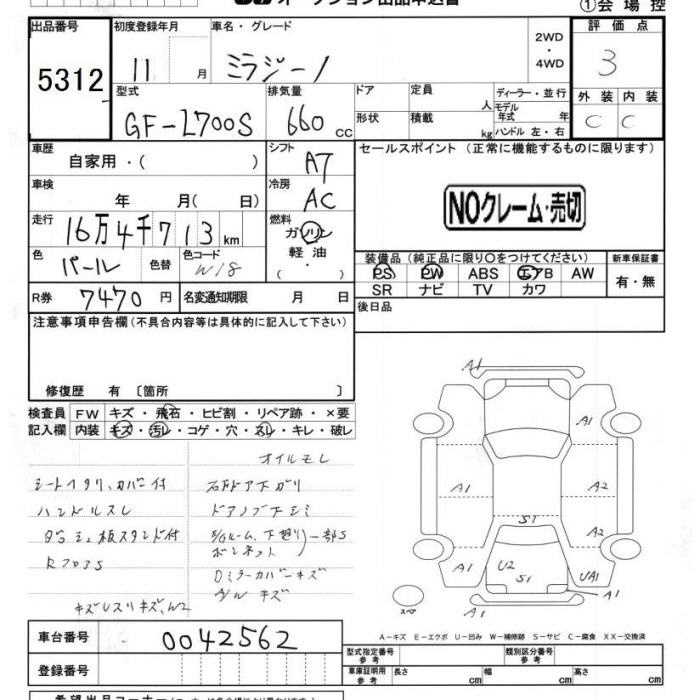 オークション出品申込書
①会場控
出品番号 初度登録年月 車名・グレード 2WD・4WD 評価点
5312 11 月 ミラジーノ 3
型式 排気量 ドア 定員 人 ディーラー・並行 外装 内装
GF-L700S 660 cc 形状 積載 kg モデル年式 年 ハンドル 左・右 C C
車歴 自家用・( ) シフト AT セールスポイント (正常に機能するものに限ります)
車検 年 月( 日) 冷房 AC
NOクレーム・売切
走行 16万4千713km 燃料 ガソリン
軽油
・( )
色 パール 色替 色コード W18
装備品(純正品に限り○をつけてください) 新車保証書
PS PW ABS エアB AW 有・無
SR ナビ TV カワ
R券 7470円 名変通知期限 月 日 後日品
注意事項申告欄(不具合内容等は具体的に記入して下さい)
修復歴 有 〔箇所 〕
検査員 FW キズ・飛石・ヒビ割・リペア跡・×要
記入欄 内装 キズ・汚レ・コゲ・穴・スレ・キレ・破レ
オイルモレ
ハンドルスレ
RフロアS
DミラーカバーキズA/Wキズ
A1
A1
A1 A2
S1 A2
A1 U2 S1 UA1
A1
A1
スペア
A-キズ E-エクボ U-凹み W-補修跡 S-サビ C-腐食 XX-交換済
車台番号 0042562
型式指定番号 参考 類別区分番号 参考
登録番号
車庫証明用 参考 長さ cm 幅 cm 高さ cm